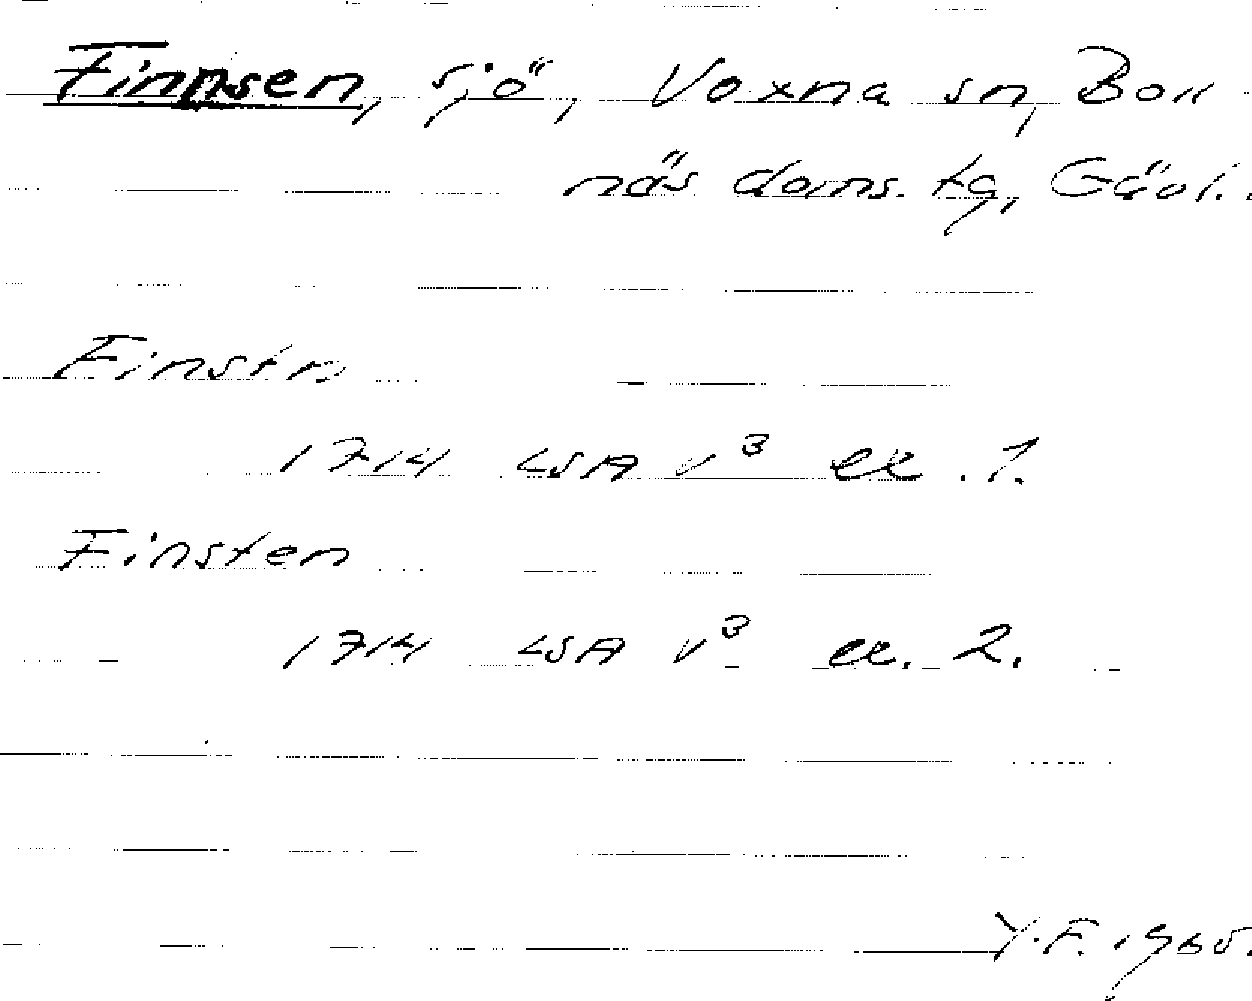 Finnsen, sjö, Voxna sn, Boll-
näs doms. tg, Gävl.
Finstn
1714 LSA V³ ex. 1.
Finsten
1714 LSA V³ ex. 2.
Y.F. 1965.